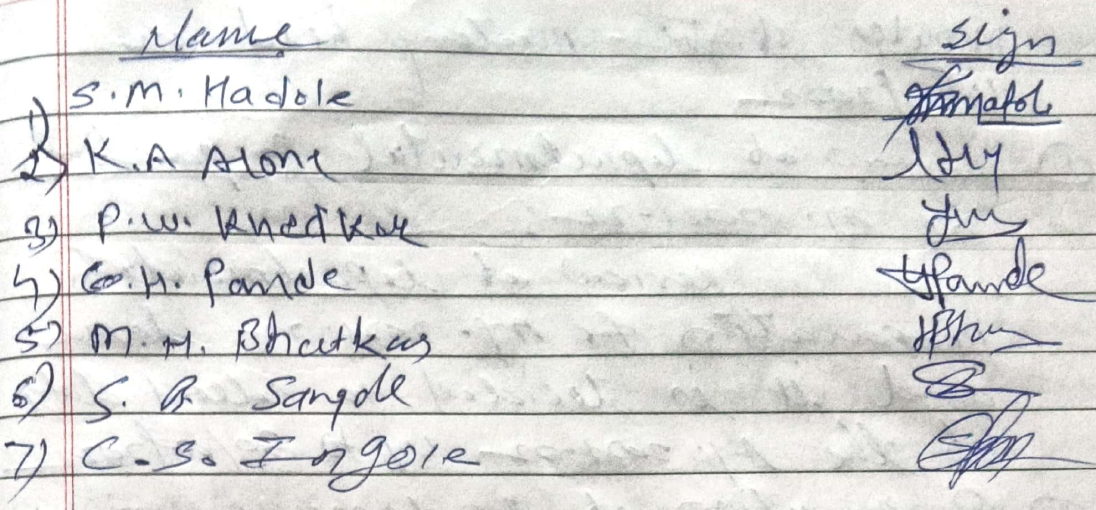 Name sign
1) S.M. Hadole
2) K.A Alone
3) P.W. Khedkar
4) G.H. Pande Pande
5) M.H. Bhatkar
6) S. B. Sangole
7) C.S. Ingole